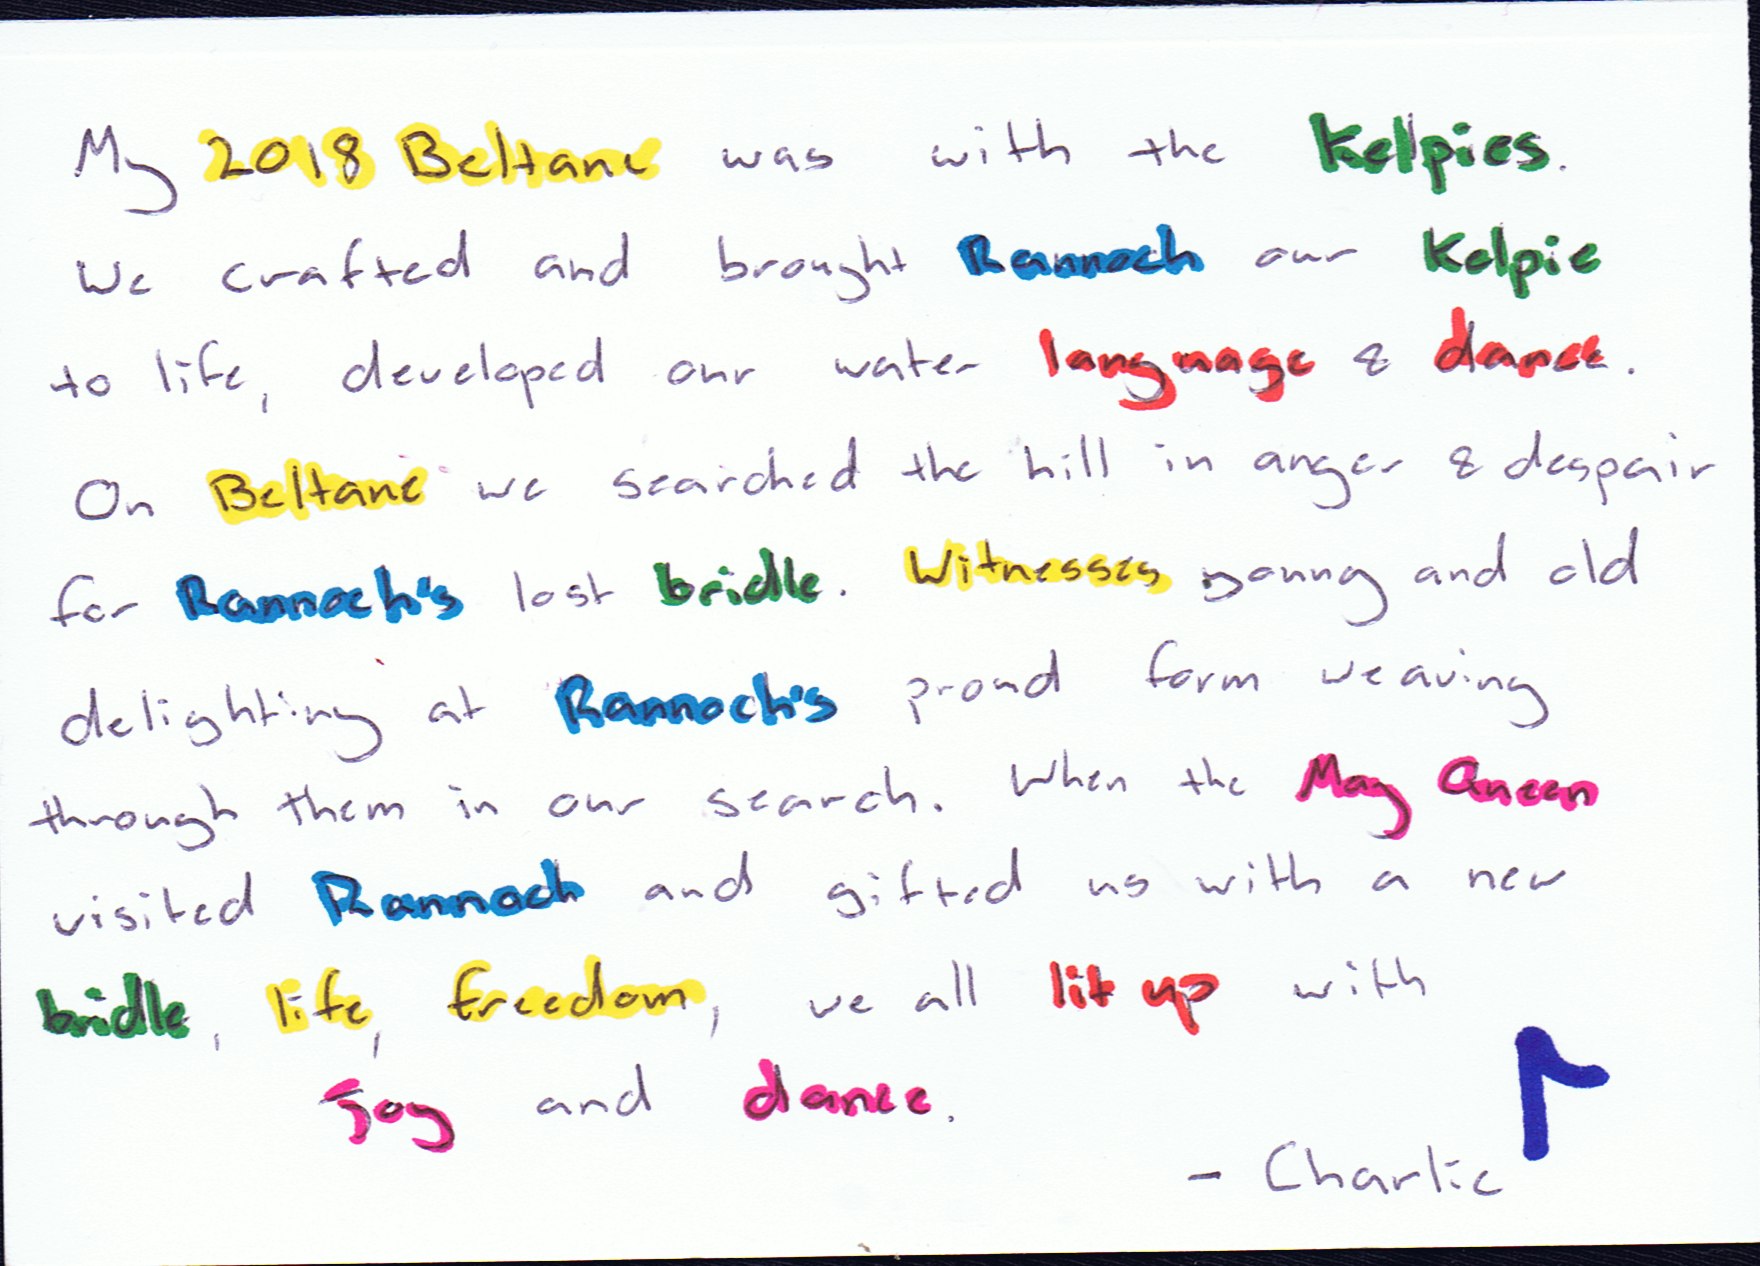 My 2018 Beltane was with the Kelpies.
We crafted and brought Rannoch our Kelpie
to life, developed our water language & dance.
On Beltane we searched the hill in anger & despair
for Rannoch's lost bridle. Witnesses young and old
delighting at Rannoch's proud form weaving
through them in our search. When the May Queen
visited Rannoch and gifted us with a new
bridle, life, freedom, we all lit up with
joy and dance.
- Charlie